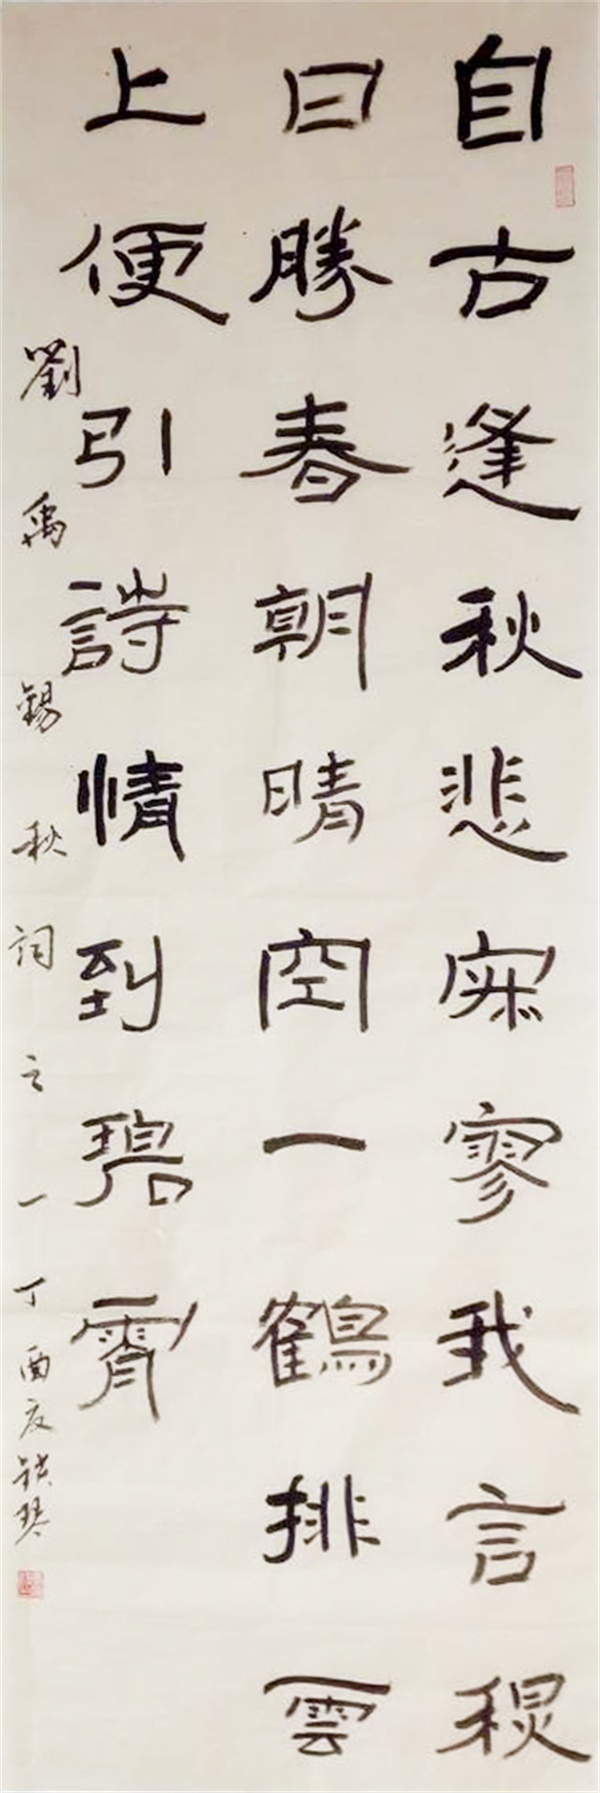 自古逢秋悲寂寥我言秋
日勝春朝晴空一鶴排雲
上便引詩情到碧霄
劉禹錫秋詞之一丁酉夏琴